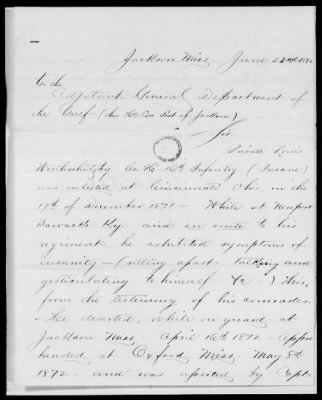 Jackson Miss. June 22nd 1872
To the
Adjutant General Department of
the Gulf (thro Hd Qrs Post of Jackson)
Sir
Private Louis
Co. H. 16th Infantry (Insane)
was enlisted at Cincinnati Ohio, on the
19th of December 1871 - While at Newport
Barracks Ky. and en route to his
regiment he exhibited symptoms of
insanity - (sitting apart - talking and
gesticulating to himself &c ) this,
from the testimony of his comrades.
- He deserted, while on guard, at
Jackson Miss. April 16th 1872 - appre
hended at Oxford Miss. May 8th
1872 - and was reported by Capt.